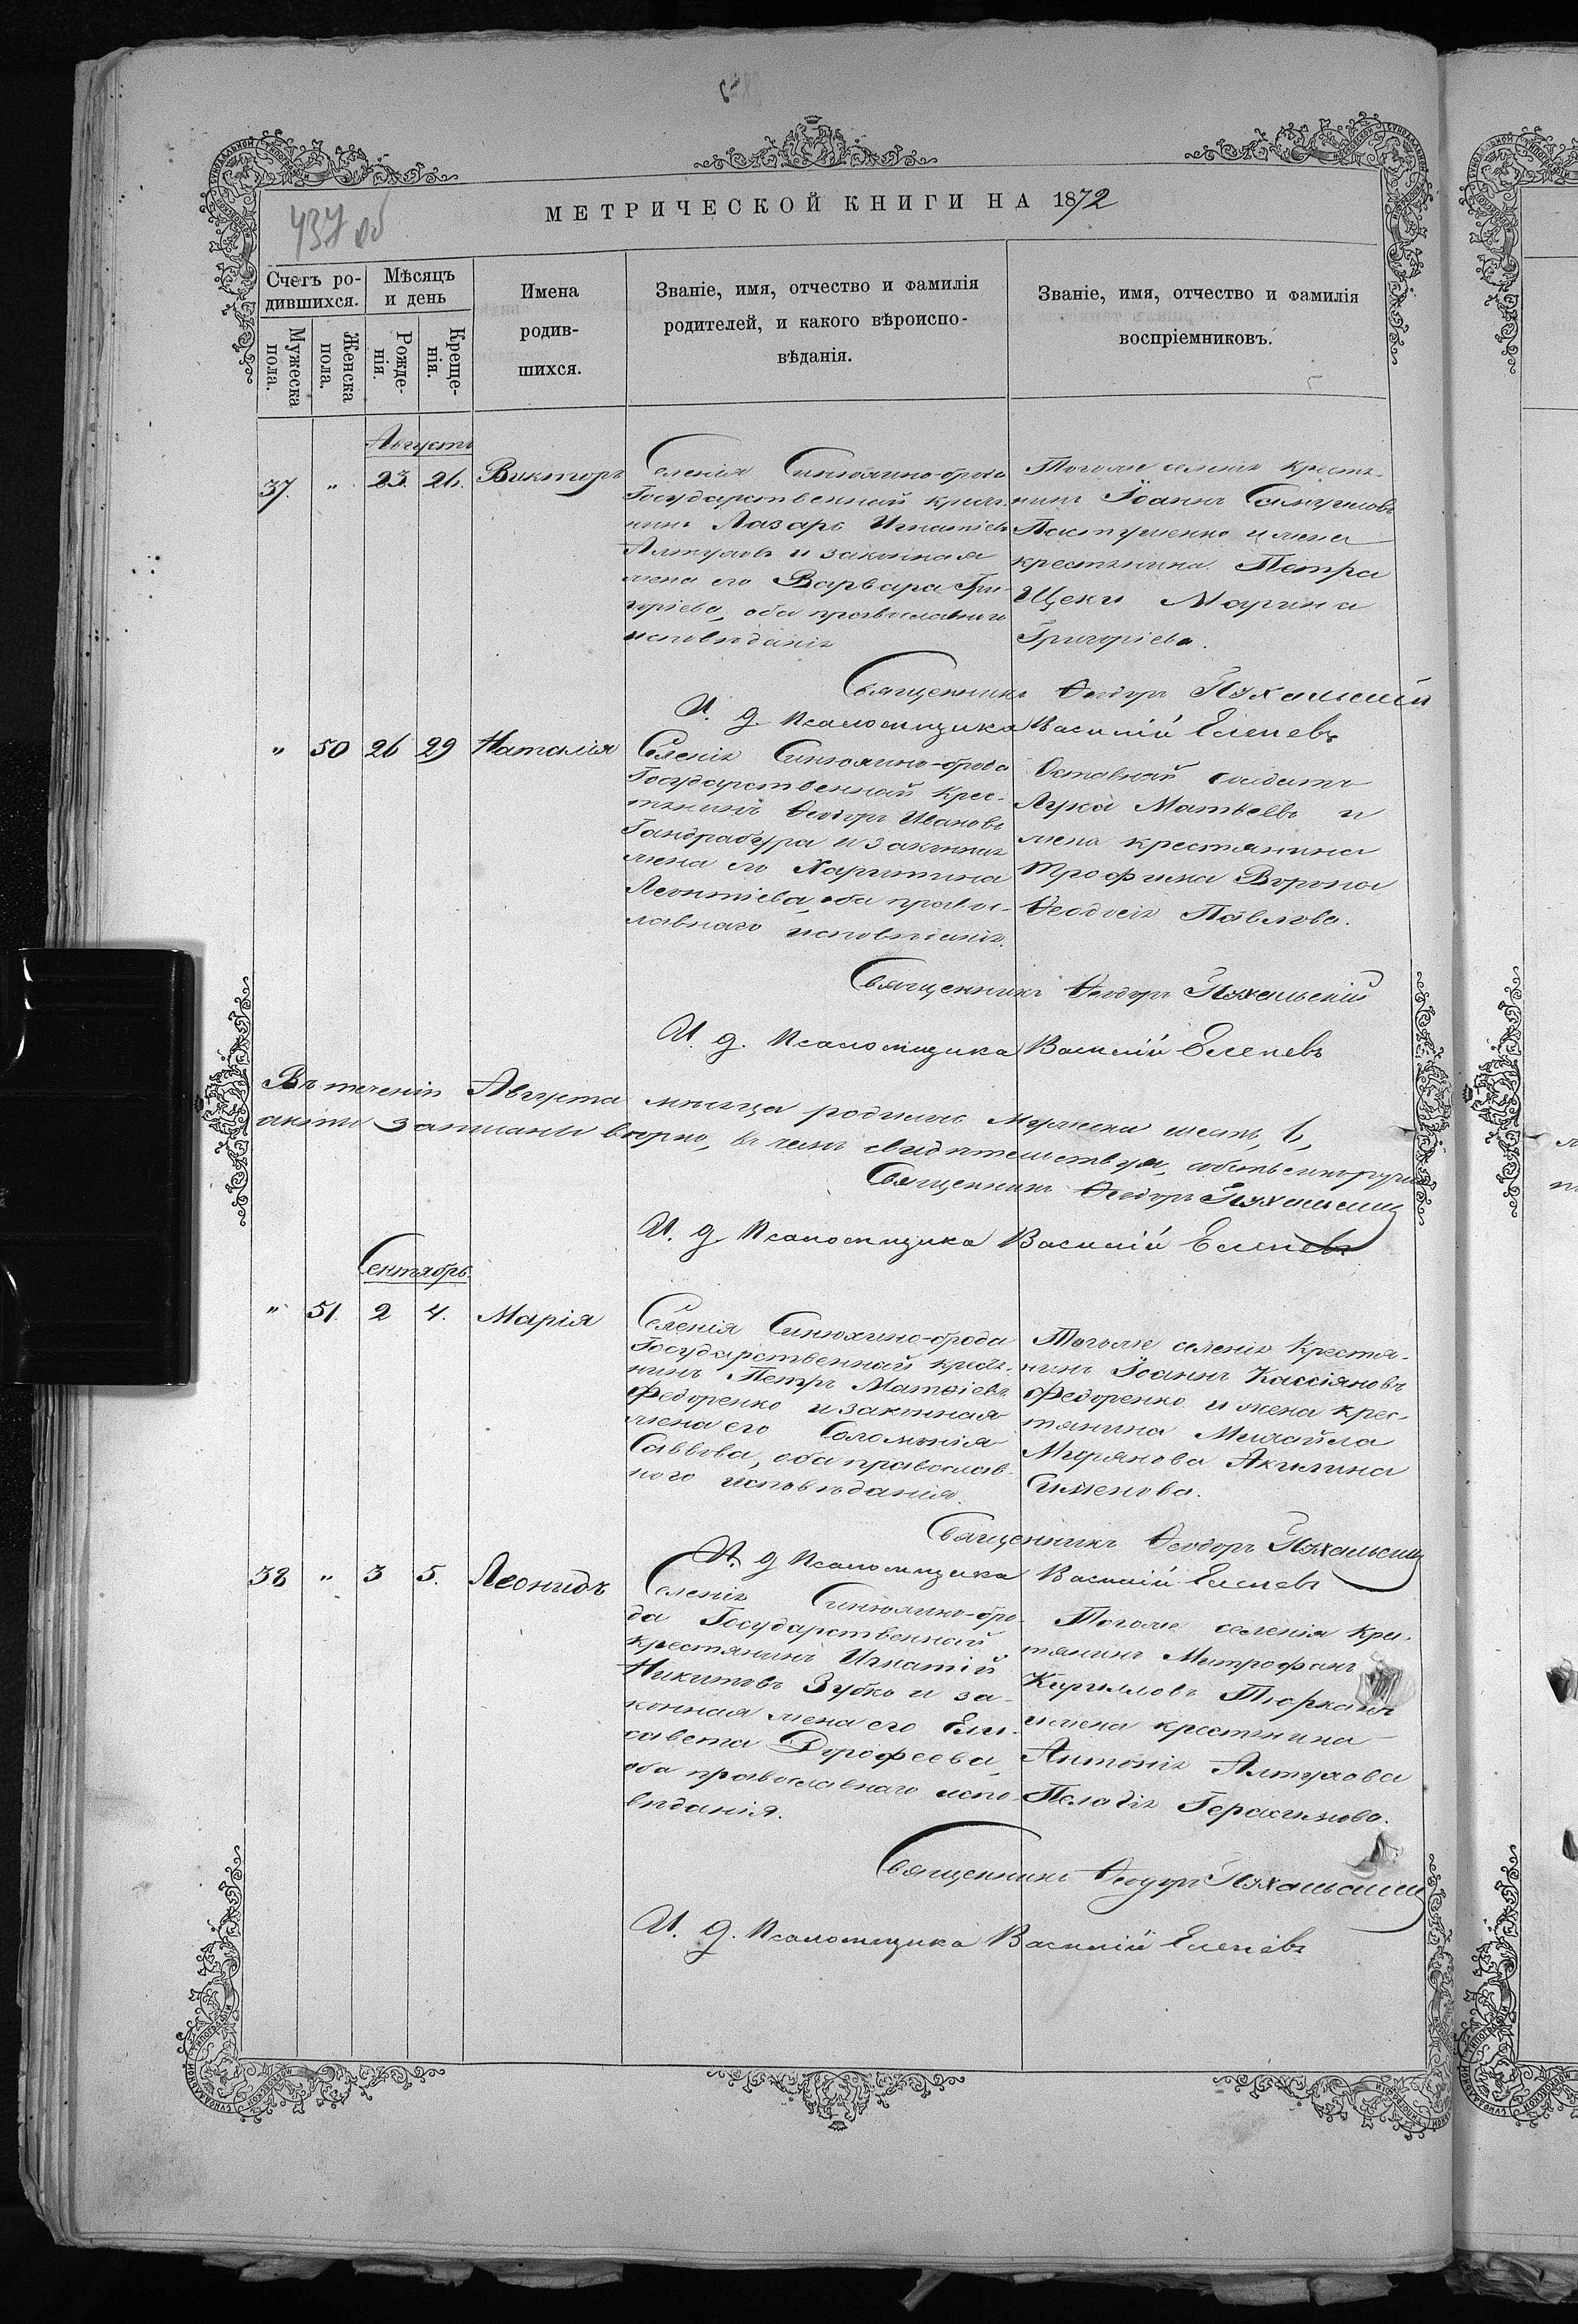 МЕТРИЧЕСКОЙ КНИГИ НА 1872
437 об
Счетъ ро-
дившихся.
Мужеска
пола.
Женска
пола.
Мѣсяцъ
и день
Рожде-
нія.
Креще-
нія.
Имена
родив-
шихся.
Званіе, имя, отчество и фамилія
родителей, и какого вѣроиспо-
вѣданія.
Званіе, имя, отчество и фамилія
воспріемниковъ.
Августъ
37. " 23. 26. Викторъ
Селенія Синюхино-брода
Государственный крестя-
нинъ Лазарь Игнатіевъ
Алтуховъ и законная
жена его Варвара Гри-
горіева, оба православнаго
исповѣданія
Тогоже селенія крестя-
нинъ Іоаннъ Самуиловъ
Пастушенко и жена
крестянина Петра
Щеки Марина
Григоріева.
Священникъ Ѳеодоръ Пухальскій
И. д. Псаломщика Василій Еленевъ
" 50 26 29 Наталія
Селенія Синюхино-брода
Государственный крес-
тянинъ Ѳеодоръ Ивановъ
Гандрабура и законная
жена его Харитина
Леонтіева, оба правос-
лавнаго исповѣданія.
Отставной солдатъ
Лука Матвѣевъ и
жена крестянина
Трофима Ворона
Ѳеодосія Павлова.
Священникъ Ѳеодоръ Пухальскій
И. д. Псаломщика Василій Еленевъ
Въ теченіи Августа мѣсяца родилось мужеска шесть, 6,
записаны вѣрно, въ чемъ свидѣтельствуя,
Священникъ Ѳеодоръ Пухальскій
И. д. Псаломщика Василій Еленевъ
Сентябрь.
" 51. 2 4. Марія
Селенія Синюхино-брода
Государственный крестя-
нинъ Петръ Матвіевъ
Федоренко и законная
жена его Соломонія
Саввова, оба православ-
ного исповѣданія.
Тогоже селенія Крестя-
нинъ Іоаннъ Кассіяновъ
Федоренко и жена крес-
тянина Михайла
Акилина
Сименова.
Священникъ Ѳеодоръ Пухальскій
И. д. Псаломщика Василій Еленевъ
38 " 3 5. Леонидъ
Селенія Синюхино-бро-
да Государственный
крестянинъ Игнатій
Никитовъ Зубко и за-
конная жена его Ели-
савета Дорофеева,
оба православнаго испо-
вѣданія.
Тогоже селенія крес-
тянинъ Митрофанъ
Кирилловъ Тюрканъ
и жена крестянина
Антонія Алтухова
Пелагія Герасимова.
Священникъ Ѳеодоръ Пухальскій
И. д. Псаломщика Василій Еленевъ